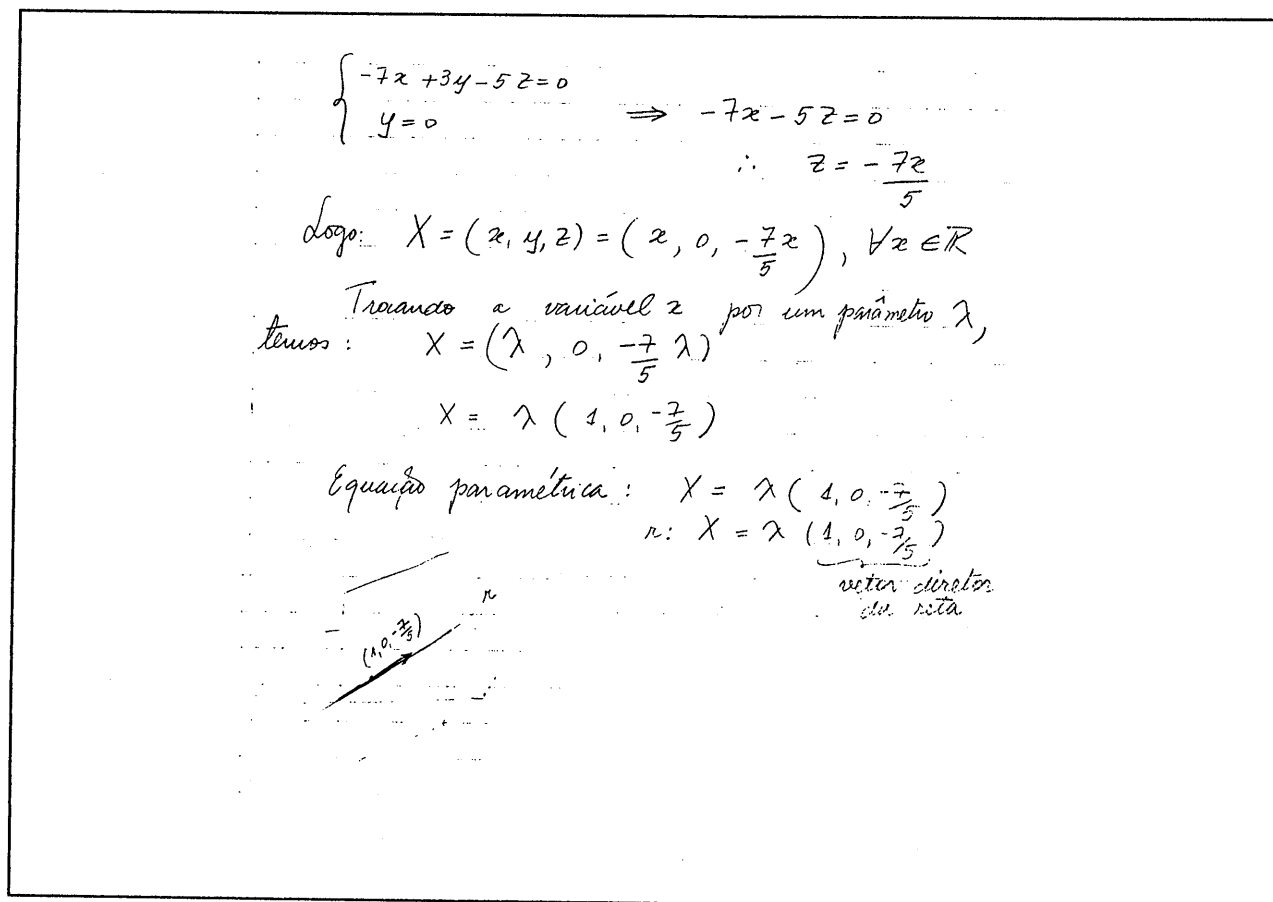 { -7x + 3y - 5z = 0
y = 0 ⟹ -7x - 5z = 0
∴ z = -7x/5
Logo: X = (x, y, z) = (x, 0, -7/5 x), ∀x ∈ ℝ
Trocando a variável x por um parâmetro λ,
temos: X = (λ, 0, -7/5 λ)
X = λ (1, 0, -7/5)
Equação paramétrica: X = λ (1, 0, -7/5)
r: X = λ (1, 0, -7/5)
vetor diretor
da reta
r
(1, 0, -7/5)